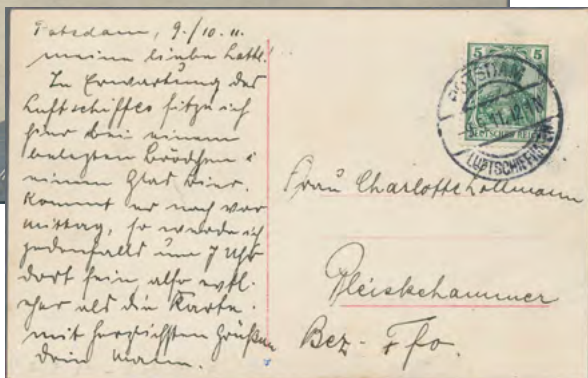 Potsdam, 9./10. 11.
meine liebe Lotte!
In Erwartung des
Luftschiffes sitze ich
hier bei einem
belegten Brödchen &
einem Glas Bier.
Kommt er noch vor
mittag, so werde ich
jedenfalls um 7 Uhr
dort sein also evtl.
eher als die Karte.
mit herzlichsten Grüßen
dein Mann.
5 5
DEUTSCHES REICH
POTSDAM
LUFTSCHIFFHAFEN
Frau Charlotte Lollmann
Pleiskehammer
Bez. Ffo.